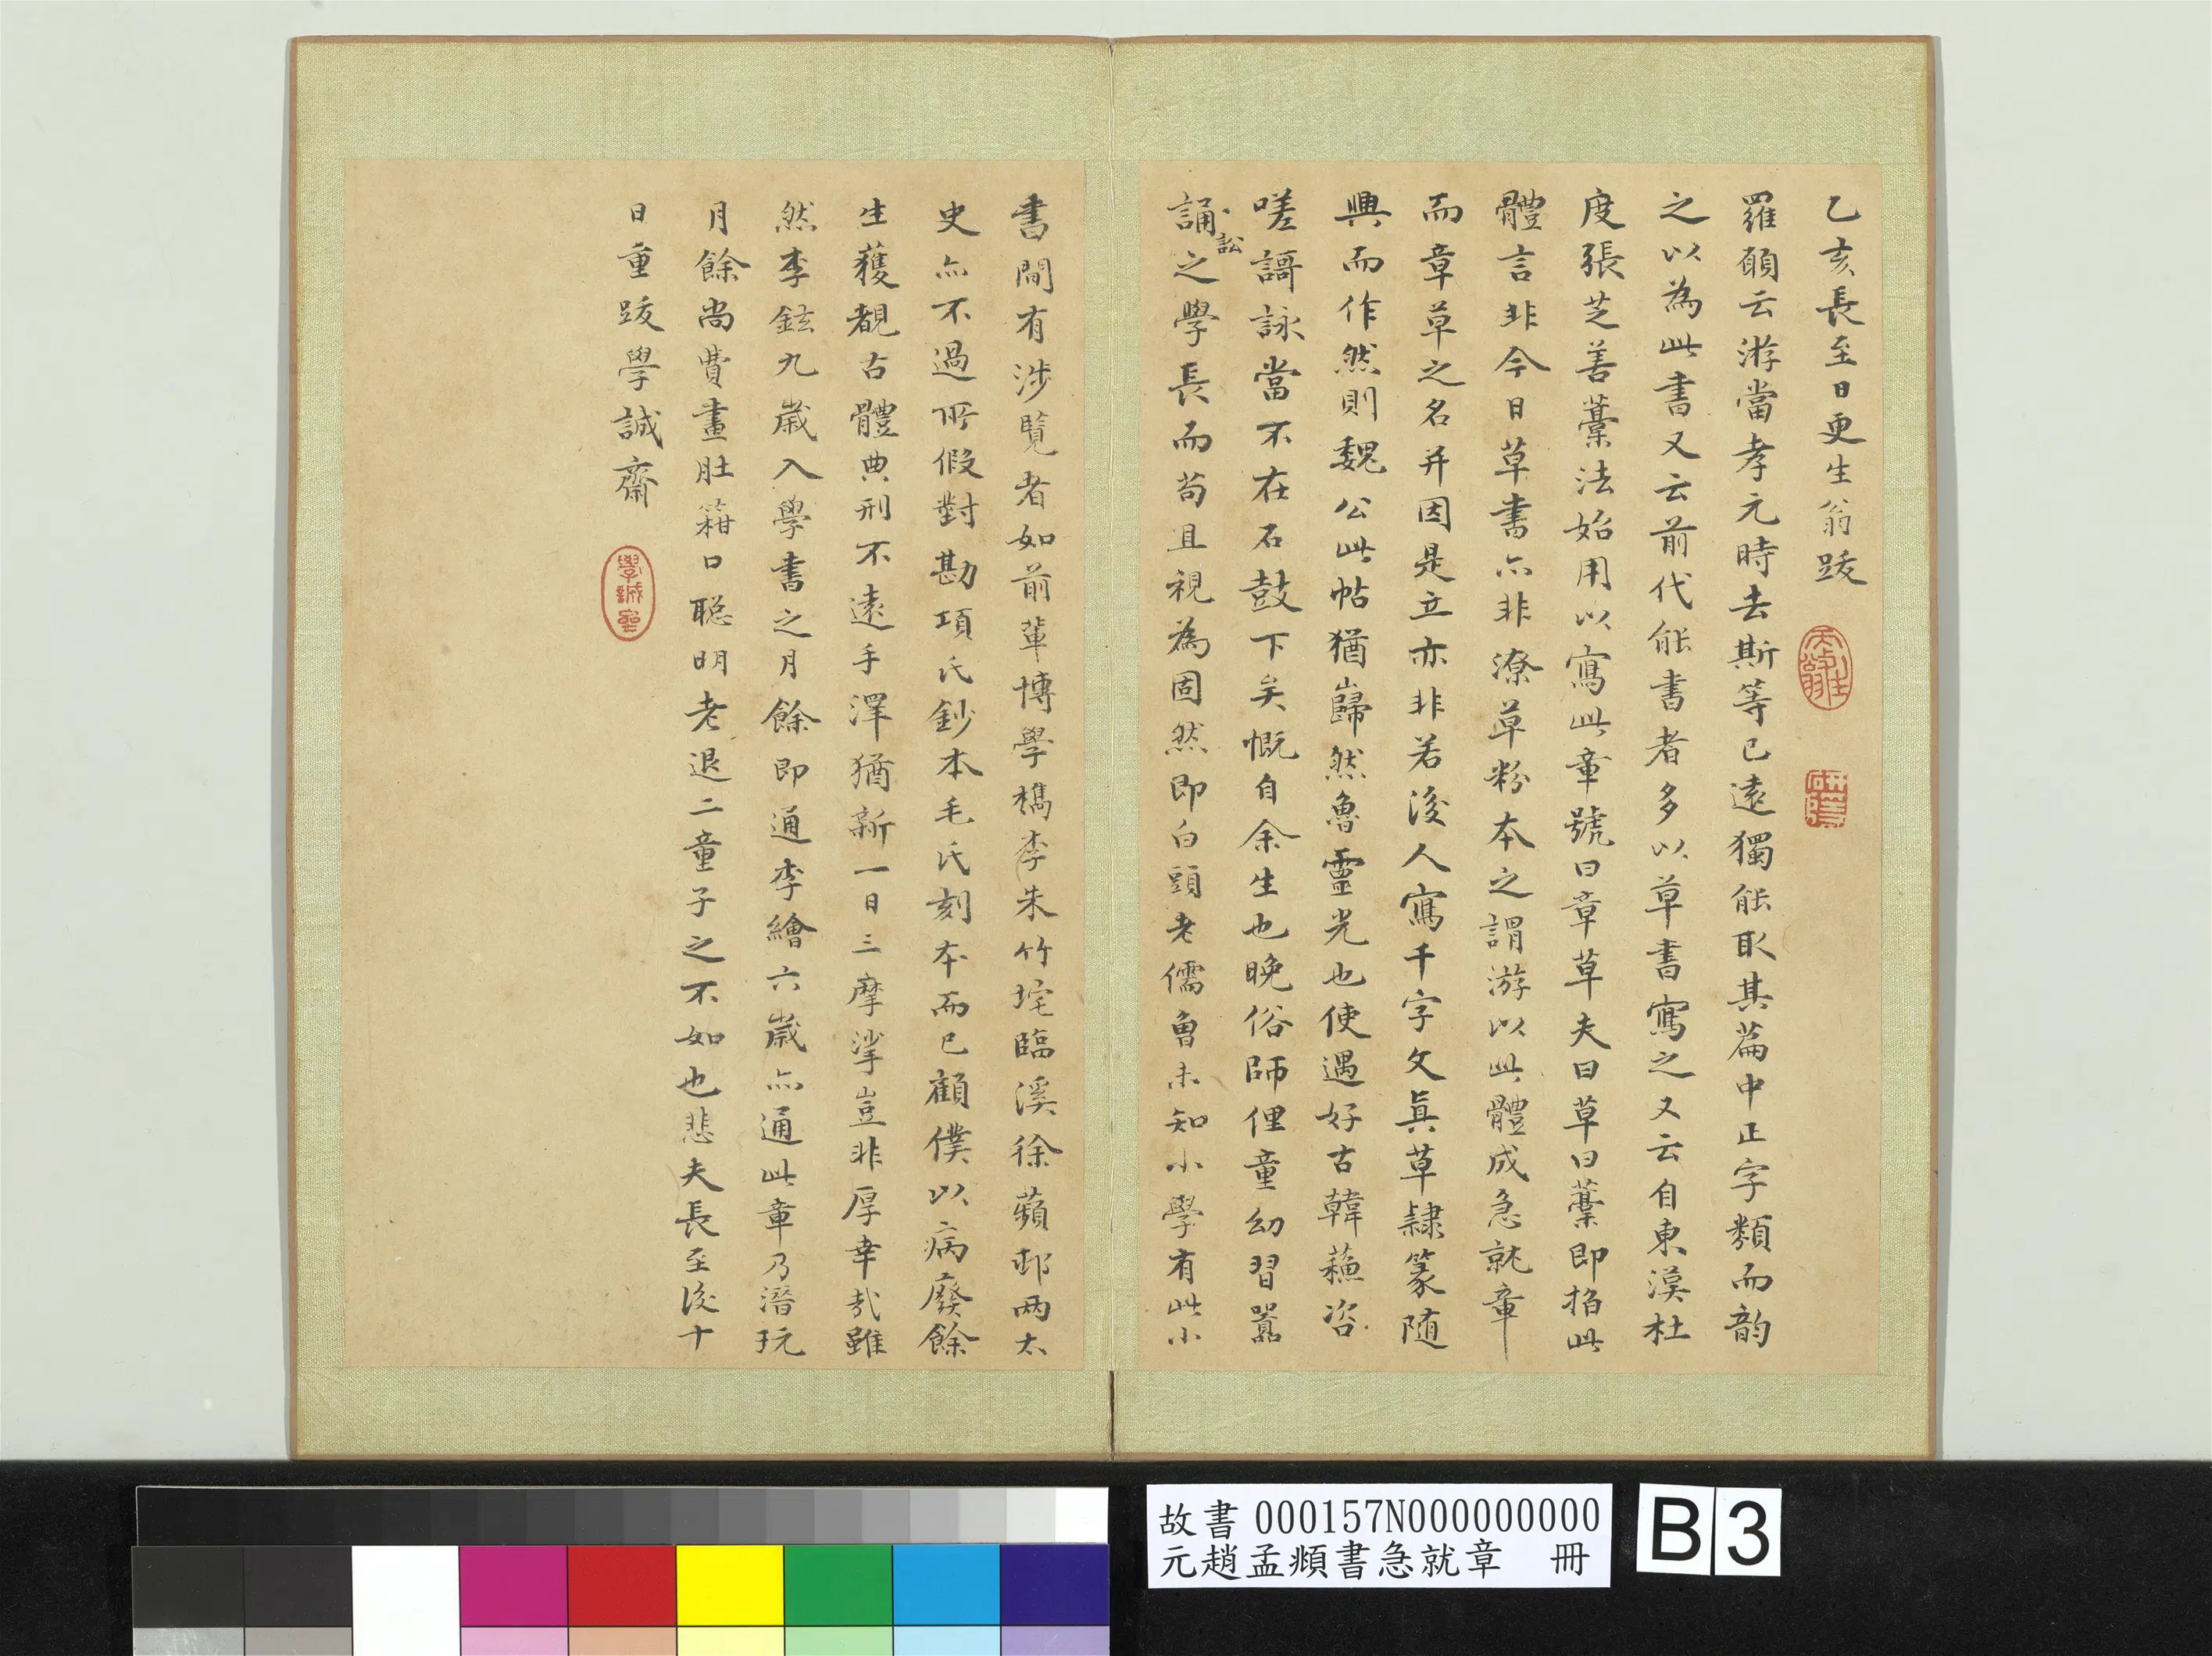 乙亥長至日更生翁跋
羅願云游當孝元時去斯等已遠獨能取其篇中正字類而韵
之以為此書又云前代能書者多以草書寫之又云自東漢杜
度張芝善藁法始用以寫此章號曰章草夫曰草曰藁即指此
體言非今日草書亦非潦草粉本之謂游以此體成急就章
而章草之名并因是立亦非若後人寫千字文真草隸篆隨
興而作然則魏公此帖猶巋然魯靈光也使遇好古韓蘓咨
嗟謌詠當不在石鼓下矣慨自余生也晚俗師俚童幼習嚚
訟
誦之學長而苟且視為固然即白頭老儒曾未知小學有此小
書間有涉覽者如前輩博學檇李朱竹垞臨溪徐蘋邨兩太
史亦不過所假對勘項氏鈔本毛氏刻本而已顧僕以病廢餘
生獲覩古體典刑不遠手澤猶新一日三摩挲豈非厚幸哉雖
然李鉉九歲入學書之月餘即通李繪六歲亦通此章乃潛玩
月餘尚費畫肚箝口聰明老退二童子之不如也悲夫長至後十
日重跋學誠齋
故書 000157N000000000
元趙孟頫書急就章 冊
B3